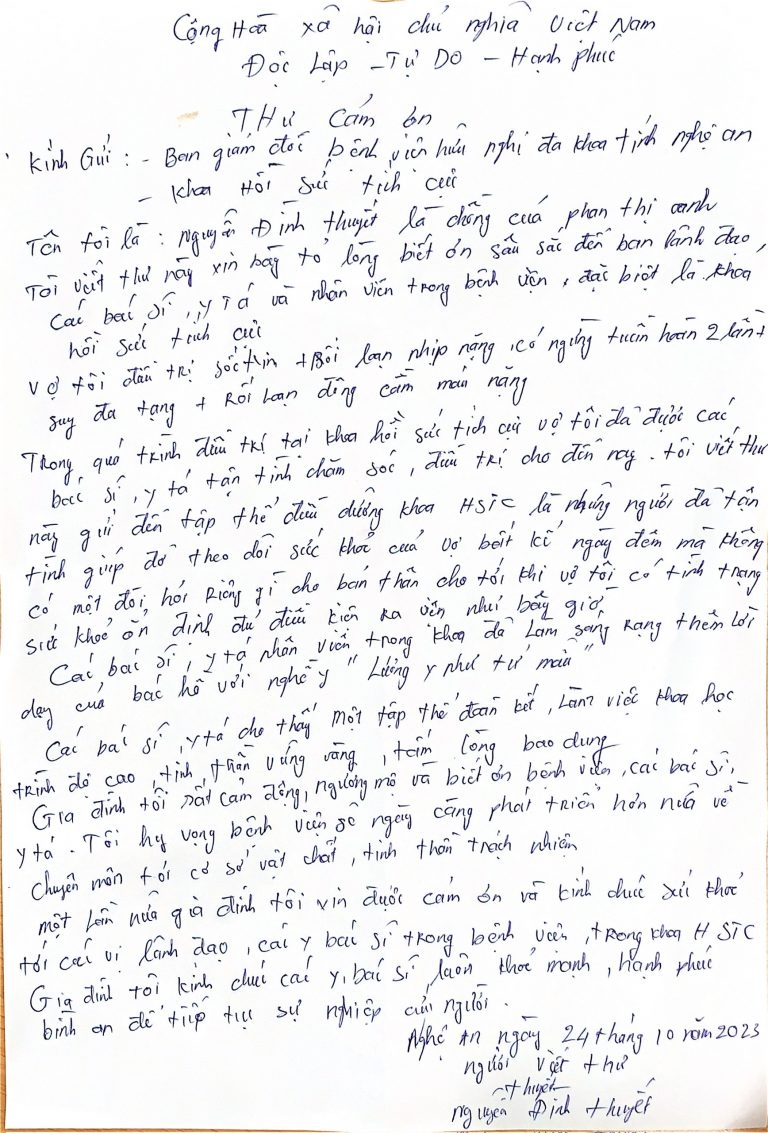 Cộng Hoà xã hội chủ nghĩa Việt Nam
Độc Lập - Tự Do - Hạnh phúc
THư Cảm ơn
Kính Gửi : - Ban giám đốc bệnh viện hữu nghị đa khoa tỉnh nghệ an
- Khoa Hồi sức tích cực
Tên tôi là : nguyễn Đình thuyết là chồng của phan thị oanh
Tôi viết thư này xin bày tỏ lòng biết ơn sâu sắc đến ban lãnh đạo,
Các bác sĩ, y Tá và nhân viên trong bệnh viện, đặc biệt là khoa
hồi sức tích cực
Vợ tôi điều trị sốc tim + Rối loạn nhịp nặng, có ngừng tuần hoàn 2 lần +
suy đa tạng + Rối Loạn đông cầm máu nặng
Trong quá trình điều trị tại khoa hồi sức tích cực vợ tôi đã được các
bác sĩ, y tá tận tình chăm sóc, điều trị cho đến nay. tôi viết thư
này gửi đến tập thể điều dưỡng khoa HSTC là những người đã tận
tình giúp đỡ theo dõi sức khoẻ của vợ bất kể ngày đêm mà không
có một đòi hỏi Riêng gì cho bản thân cho tới khi vợ tôi có tình trạng
sức khoẻ ổn định đủ điều kiện ra viện như bây giờ
Các bác sĩ, y tá nhân viên trong khoa đã Làm sáng Rạng thêm lời
dạy của bác hồ với nghề y " Lương y như từ mẫu "
Các bác sĩ, y tá cho thấy một tập thể đoàn kết, Làm việc khoa học
trình độ cao, tinh thần vững vàng, tấm lòng bao dung
Gia đình tôi rất cảm động, ngưỡng mộ và biết ơn bệnh viện, các bác sĩ,
y tá. Tôi hy vọng bệnh viện sẽ ngày càng phát triển hơn nữa về
chuyên môn tới cơ sở vật chất, tinh thần trách nhiệm
một lần nữa gia đình tôi xin được cảm ơn và kính chúc sức khoẻ
tới các vị lãnh đạo, các y bác sĩ trong bệnh viện, trong khoa HSTC
Gia đình tôi kính chúc các y, bác sĩ luôn khoẻ mạnh, hạnh phúc
bình an để tiếp tục sự nghiệp cứu người.
Nghệ An ngày 24 tháng 10 năm 2023
người viết thư
thuyết
nguyễn Đình thuyết